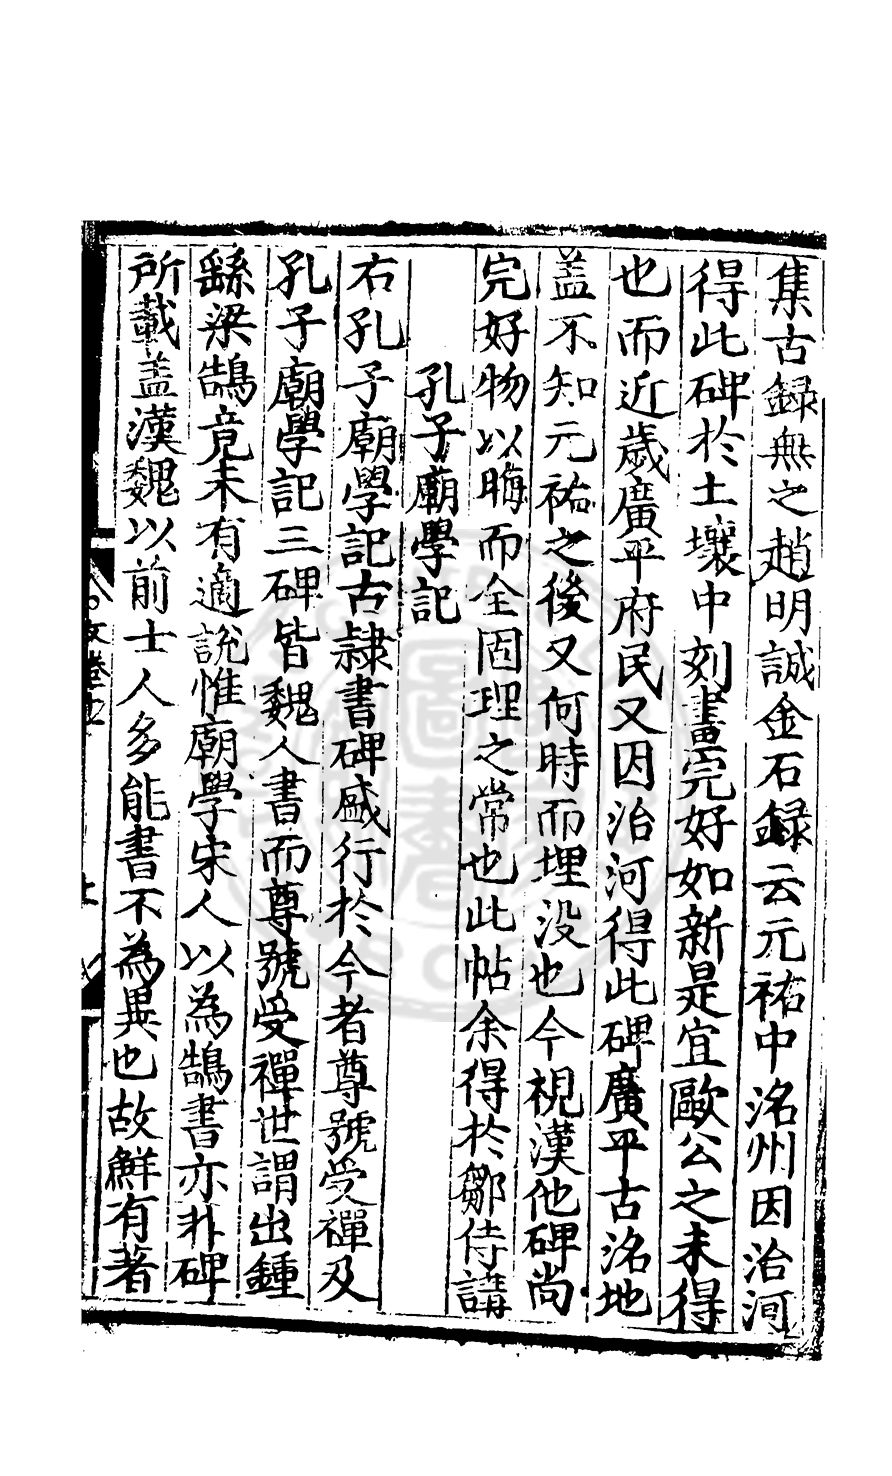 集古録無之趙明誠金石録云元祐中洺州因治河
得此碑於土壤中刻畫完好如新是宜歐公之未得
也而近歲廣平府民又因治河得此碑廣平古洺地
盖不知元祐之後又何時而埋没也今視漢他碑尚
完好物以晦而全固理之常也此帖余得於鄒侍講
孔子廟學記
右孔子廟學記古隷書碑盛行於今者尊號受禪及
孔子廟學記三碑皆魏人書而尊號受禪世謂出鍾
繇梁鵠竟未有適說惟廟學宋人以為鵠書亦非碑
所載盖漢魏以前士人多能書不為異也故鮮有著